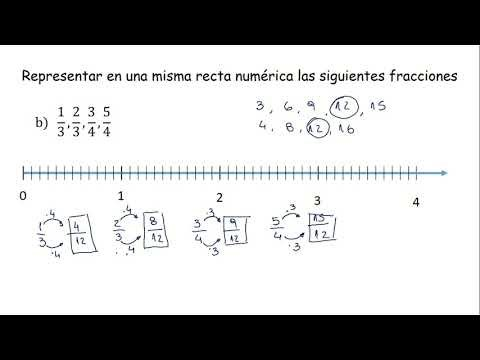 Representar en una misma recta numérica las siguientes fracciones
3, 6, 9, 12, 15
b) 1/3, 2/3, 3/4, 5/4
4, 8, 12, 16
0 1 2 3 4
1/3 ·4 ·4 4/12 2/3 ·4 ·4 8/12 3/4 ·3 ·3 9/12 5/4 ·3 ·3 15/12